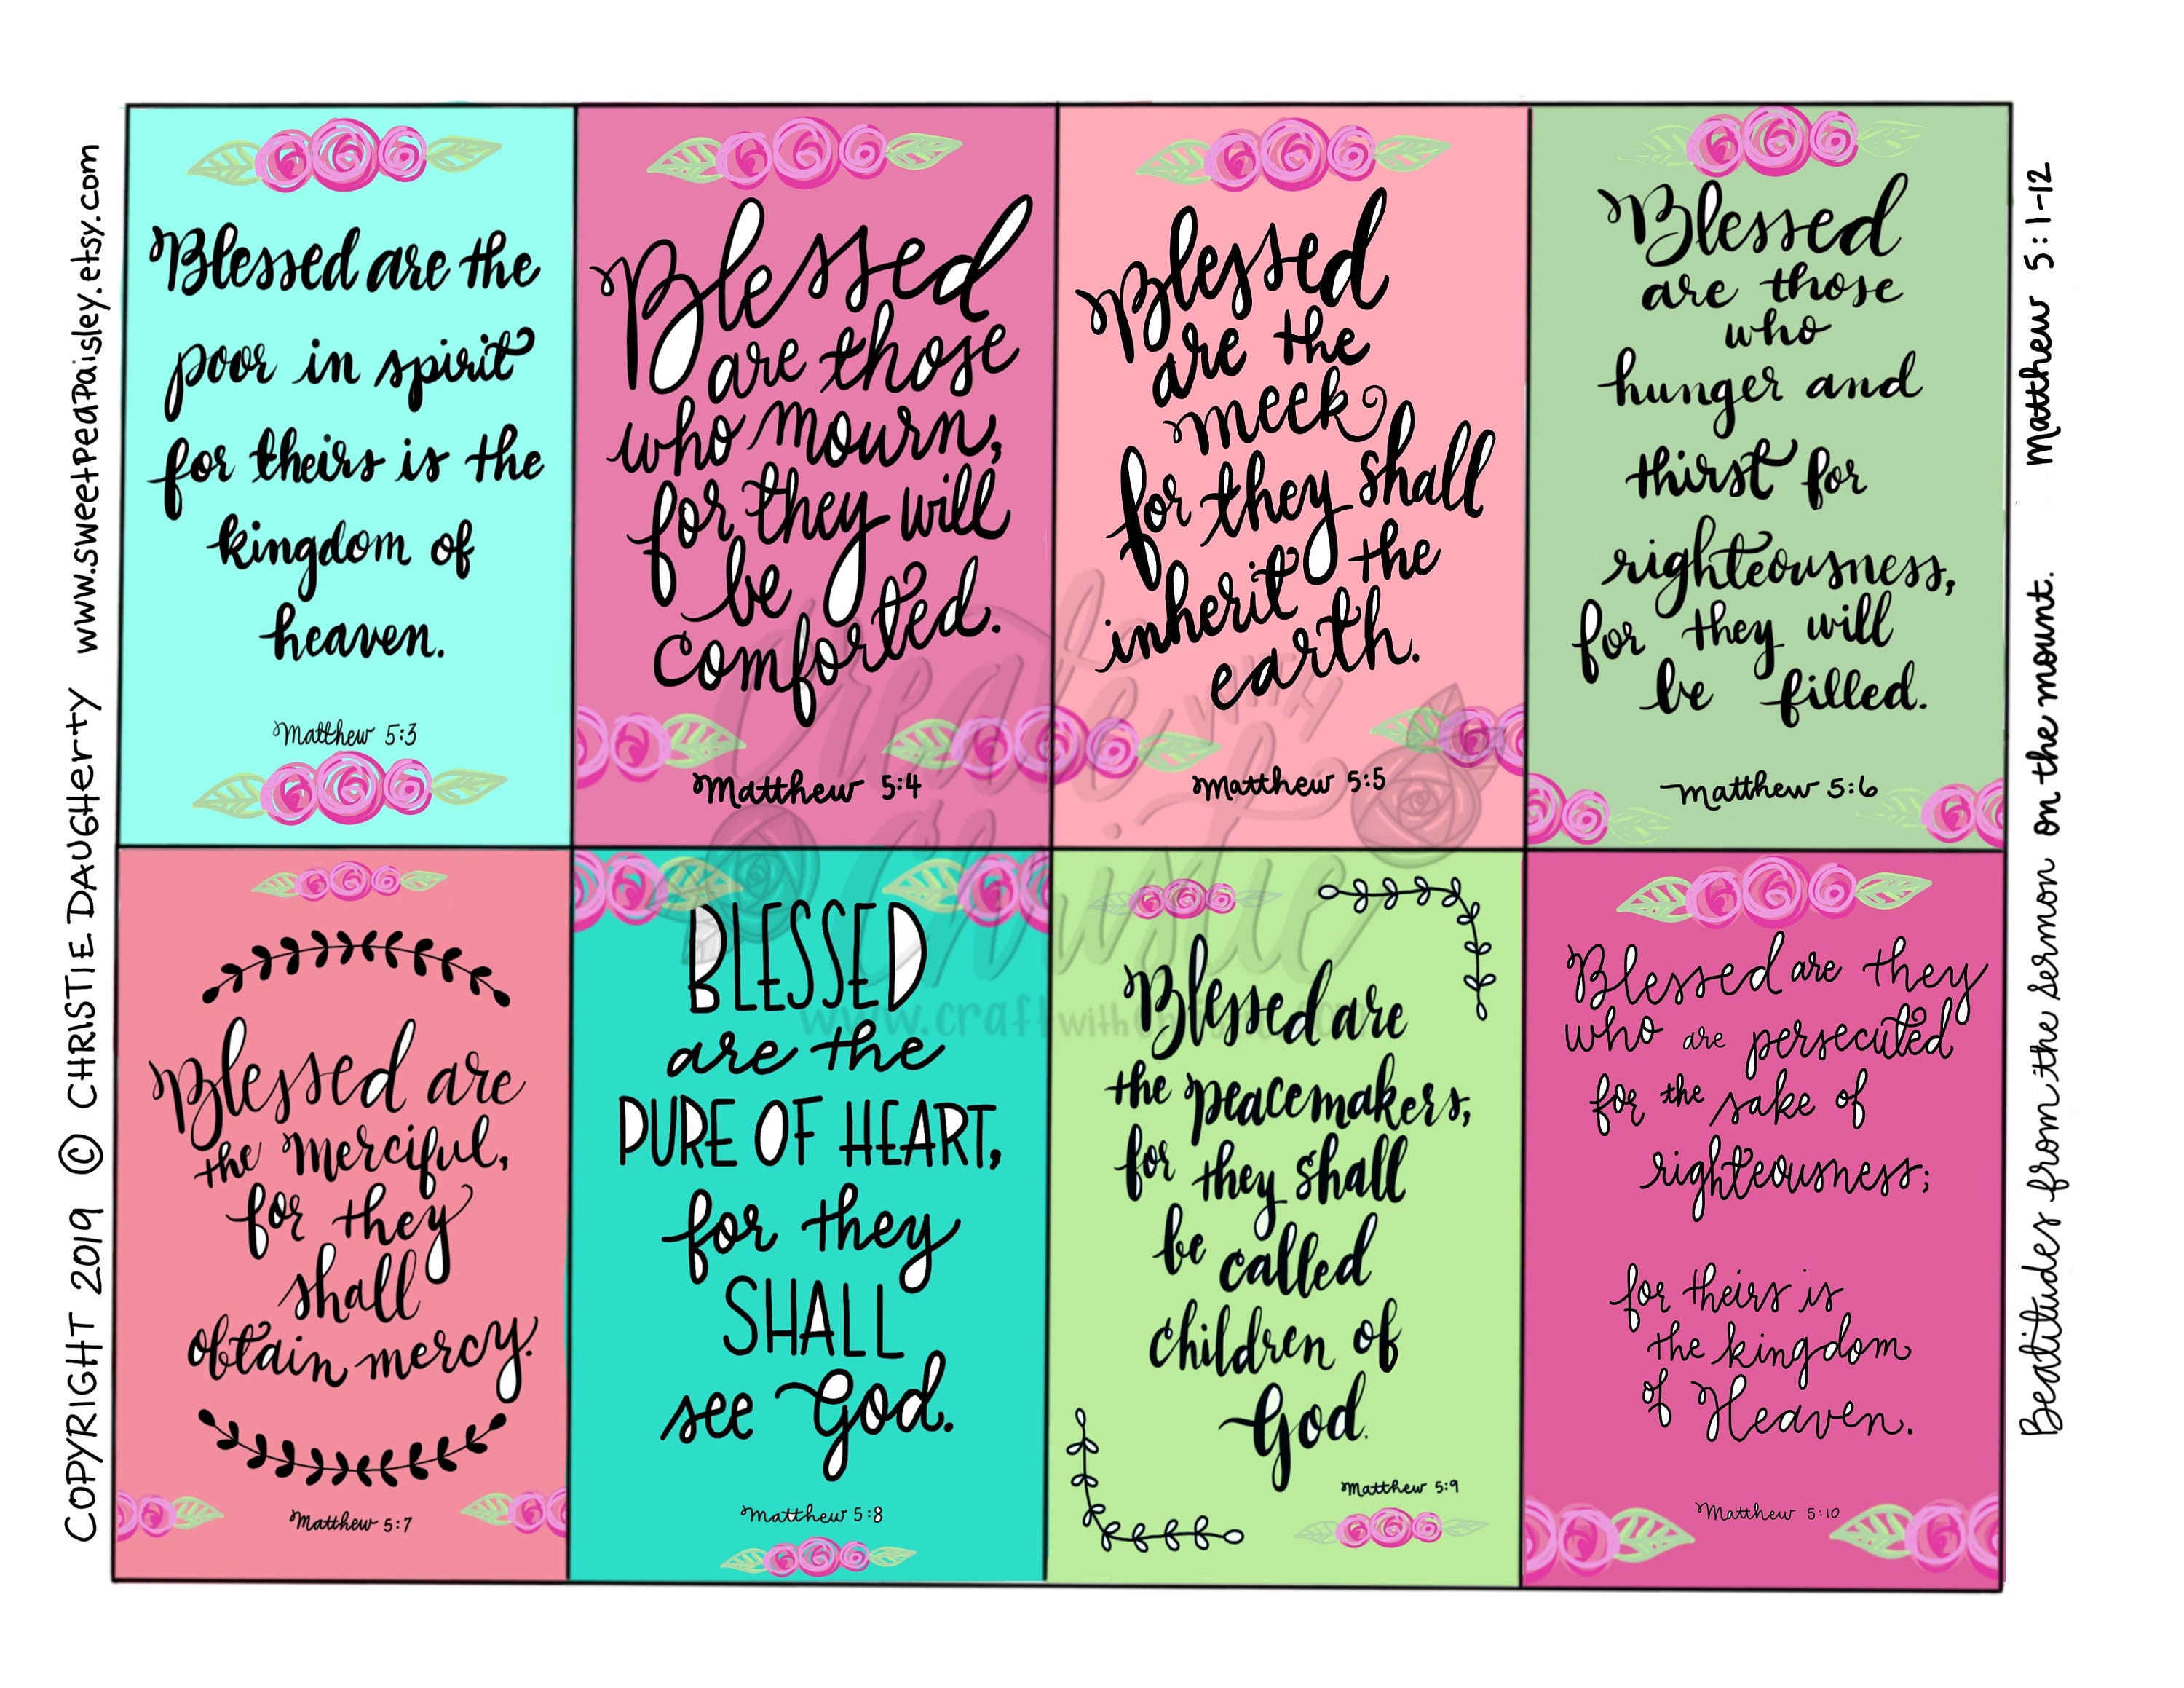 COPYRIGHT 2019 © CHRISTIE DAUGHERTY www.sweetpeapaisley.etsy.com
Blessed are the
poor in spirit
for theirs is the
kingdom of
heaven.
Matthew 5:3
Blessed
are those
who mourn,
for they will
be
comforted.
Matthew 5:4
Blessed
are the
meek
for they shall
inherit the
earth.
Matthew 5:5
Blessed
are those
who
hunger and
thirst for
righteousness,
for they will
be filled.
Matthew 5:6
Blessed are
the merciful,
for they
shall
obtain mercy.
Matthew 5:7
BLESSED
are the
PURE OF HEART,
for they
SHALL
see God.
Matthew 5:8
Blessed are
the peacemakers,
for they shall
be called
children of
God.
Matthew 5:9
Blessed are they
who are persecuted
for the sake of
righteousness;
for theirs is
the kingdom
of Heaven.
Matthew 5:10
Beatitudes from the sermon on the mount. Matthew 5:1-12
Create with
Christie
www.craftwithchristie.com